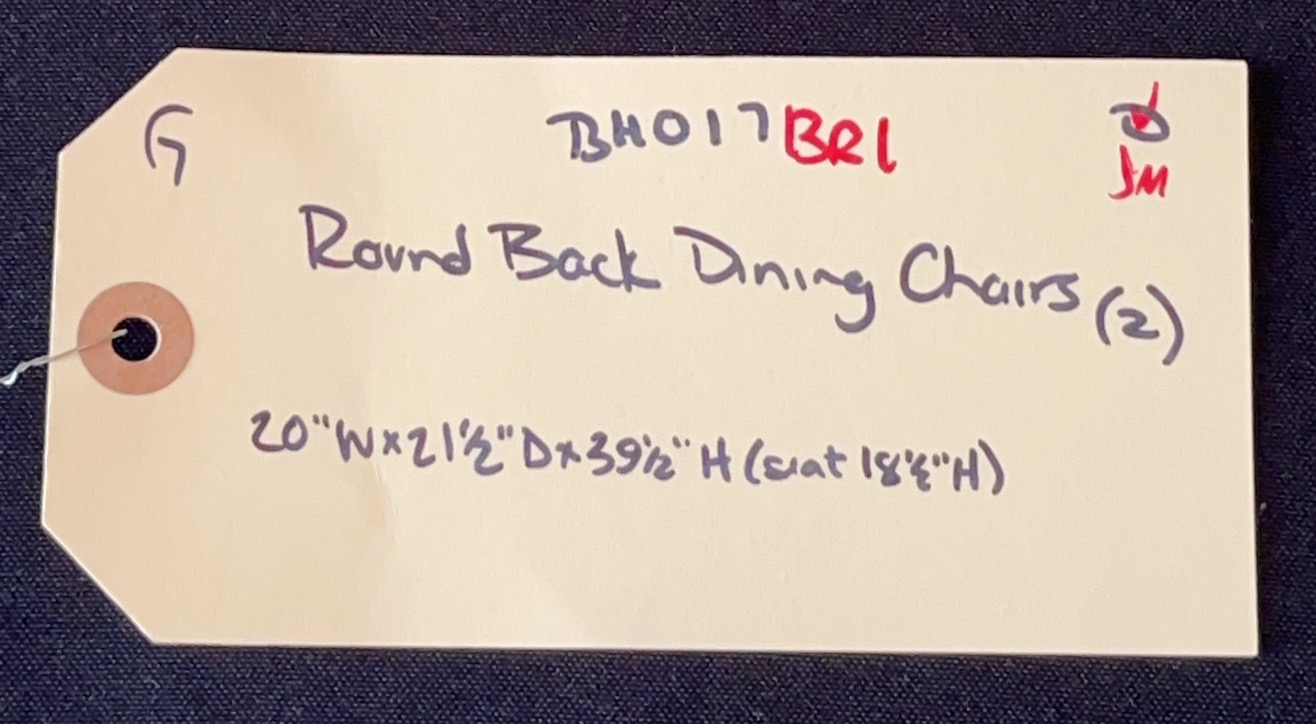 G BH017BR1
JM
Round Back Dining Chairs (2)
20"W x 21½"D x 39½"H (seat 18½"H)